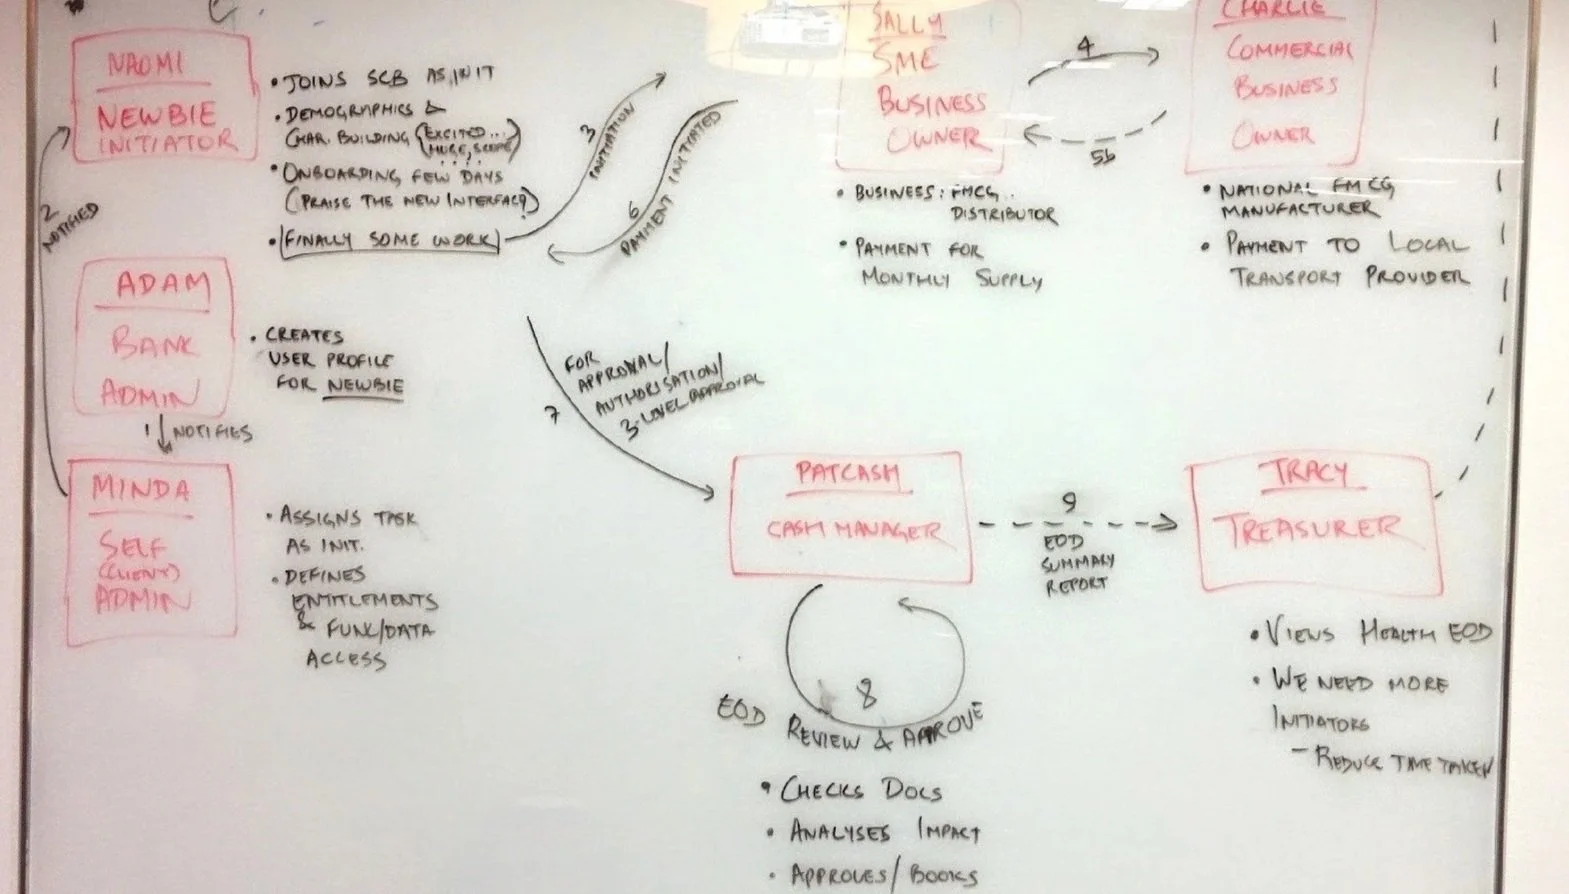 NAOMI
NEWBIE
INITIATOR
• JOINS SCB AS INIT
• DEMOGRAPHICS &
CHAR. BUILDING (EXCITED...
HUGE, SCOPE)
• ONBOARDING FEW DAYS
(PRAISE THE NEW INTERFACE)
• (FINALLY SOME WORK)
2
NOTIFIED
3
INITIATION
6
PAYMENT INITIATED
SALLY
SME
BUSINESS
OWNER
• BUSINESS: FMCG..
DISTRIBUTOR
• PAYMENT FOR
MONTHLY SUPPLY
4
5b
CHARLIE
COMMERCIAL
BUSINESS
OWNER
• NATIONAL FMCG
MANUFACTURER
• PAYMENT TO LOCAL
TRANSPORT PROVIDER
ADAM
BANK
ADMIN
• CREATES
USER PROFILE
FOR NEWBIE
1 NOTIFIES
MINDA
SELF
(CLIENT)
ADMIN
• ASSIGNS TASK
AS INIT.
• DEFINES
ENTITLEMENTS
& FUNC/DATA
ACCESS
7
FOR
APPROVAL/
AUTHORISATION/
3-LEVEL APPROVAL
PATCASH
CASH MANAGER
9
EOD
SUMMARY
REPORT
TRACY
TREASURER
• VIEWS HEALTH EOD
• WE NEED MORE
INITIATORS
- REDUCE TIME TAKEN
8
EOD REVIEW & APPROVE
• CHECKS DOCS
• ANALYSES IMPACT
• APPROVES/BOOKS